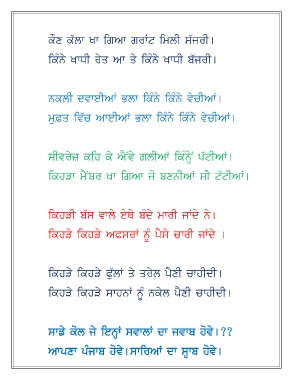 ਕੌਣ ਕੱਲਾ ਖਾ ਗਿਆ ਗਰਾਂਟ ਮਿਲੀ ਸੱਜਰੀ।
ਕਿੰਨੇ ਖਾਧੀ ਰੇਤ ਆ ਤੇ ਕਿੰਨੇ ਖਾਧੀ ਬੱਜਰੀ।
ਨਕਲੀ ਦਵਾਈਆਂ ਭਲਾ ਕਿੰਨੇ ਕਿੰਨੇ ਵੇਚੀਆਂ।
ਮੁਫ਼ਤ ਵਿੱਚ ਆਈਆਂ ਭਲਾ ਕਿੰਨੇ ਕਿੰਨੇ ਵੇਚੀਆਂ।
ਸੀਵਰੇਜ਼ ਕਹਿ ਕੇ ਐਂਵੇ ਗਲੀਆਂ ਕਿੰਨ੍ਹੇਂ ਪੱਟੀਆਂ।
ਕਿਹੜਾ ਮੈਂਬਰ ਖਾ ਗਿਆ ਜੋ ਬਣਨੀਆਂ ਸੀ ਟੱਟੀਆਂ।
ਕਿਹੜੀ ਬੱਸ ਵਾਲੇ ਏਥੇ ਬੰਦੇ ਮਾਰੀ ਜਾਂਦੇ ਨੇ।
ਕਿਹੜੇ ਕਿਹੜੇ ਅਫਸਰਾਂ ਨੂੰ ਪੈਸੇ ਚਾਰੀ ਜਾਂਦੇ ।
ਕਿਹੜੇ ਕਿਹੜੇ ਫੁੱਲਾਂ ਤੇ ਤਰੇਲ ਪੈਣੀ ਚਾਹੀਦੀ।
ਕਿਹੜੇ ਕਿਹੜੇ ਸਾਹਨਾਂ ਨੂੰ ਨਕੇਲ ਪੈਣੀ ਚਾਹੀਦੀ।
ਸਾਡੇ ਕੋਲ ਜੇ ਇਨ੍ਹਾਂ ਸਵਾਲਾਂ ਦਾ ਜਵਾਬ ਹੋਵੇ।??
ਆਪਣਾ ਪੰਜਾਬ ਹੋਵੇ।ਸਾਰਿਆਂ ਦਾ ਸ੍ਹਾਬ ਹੋਵੇ।